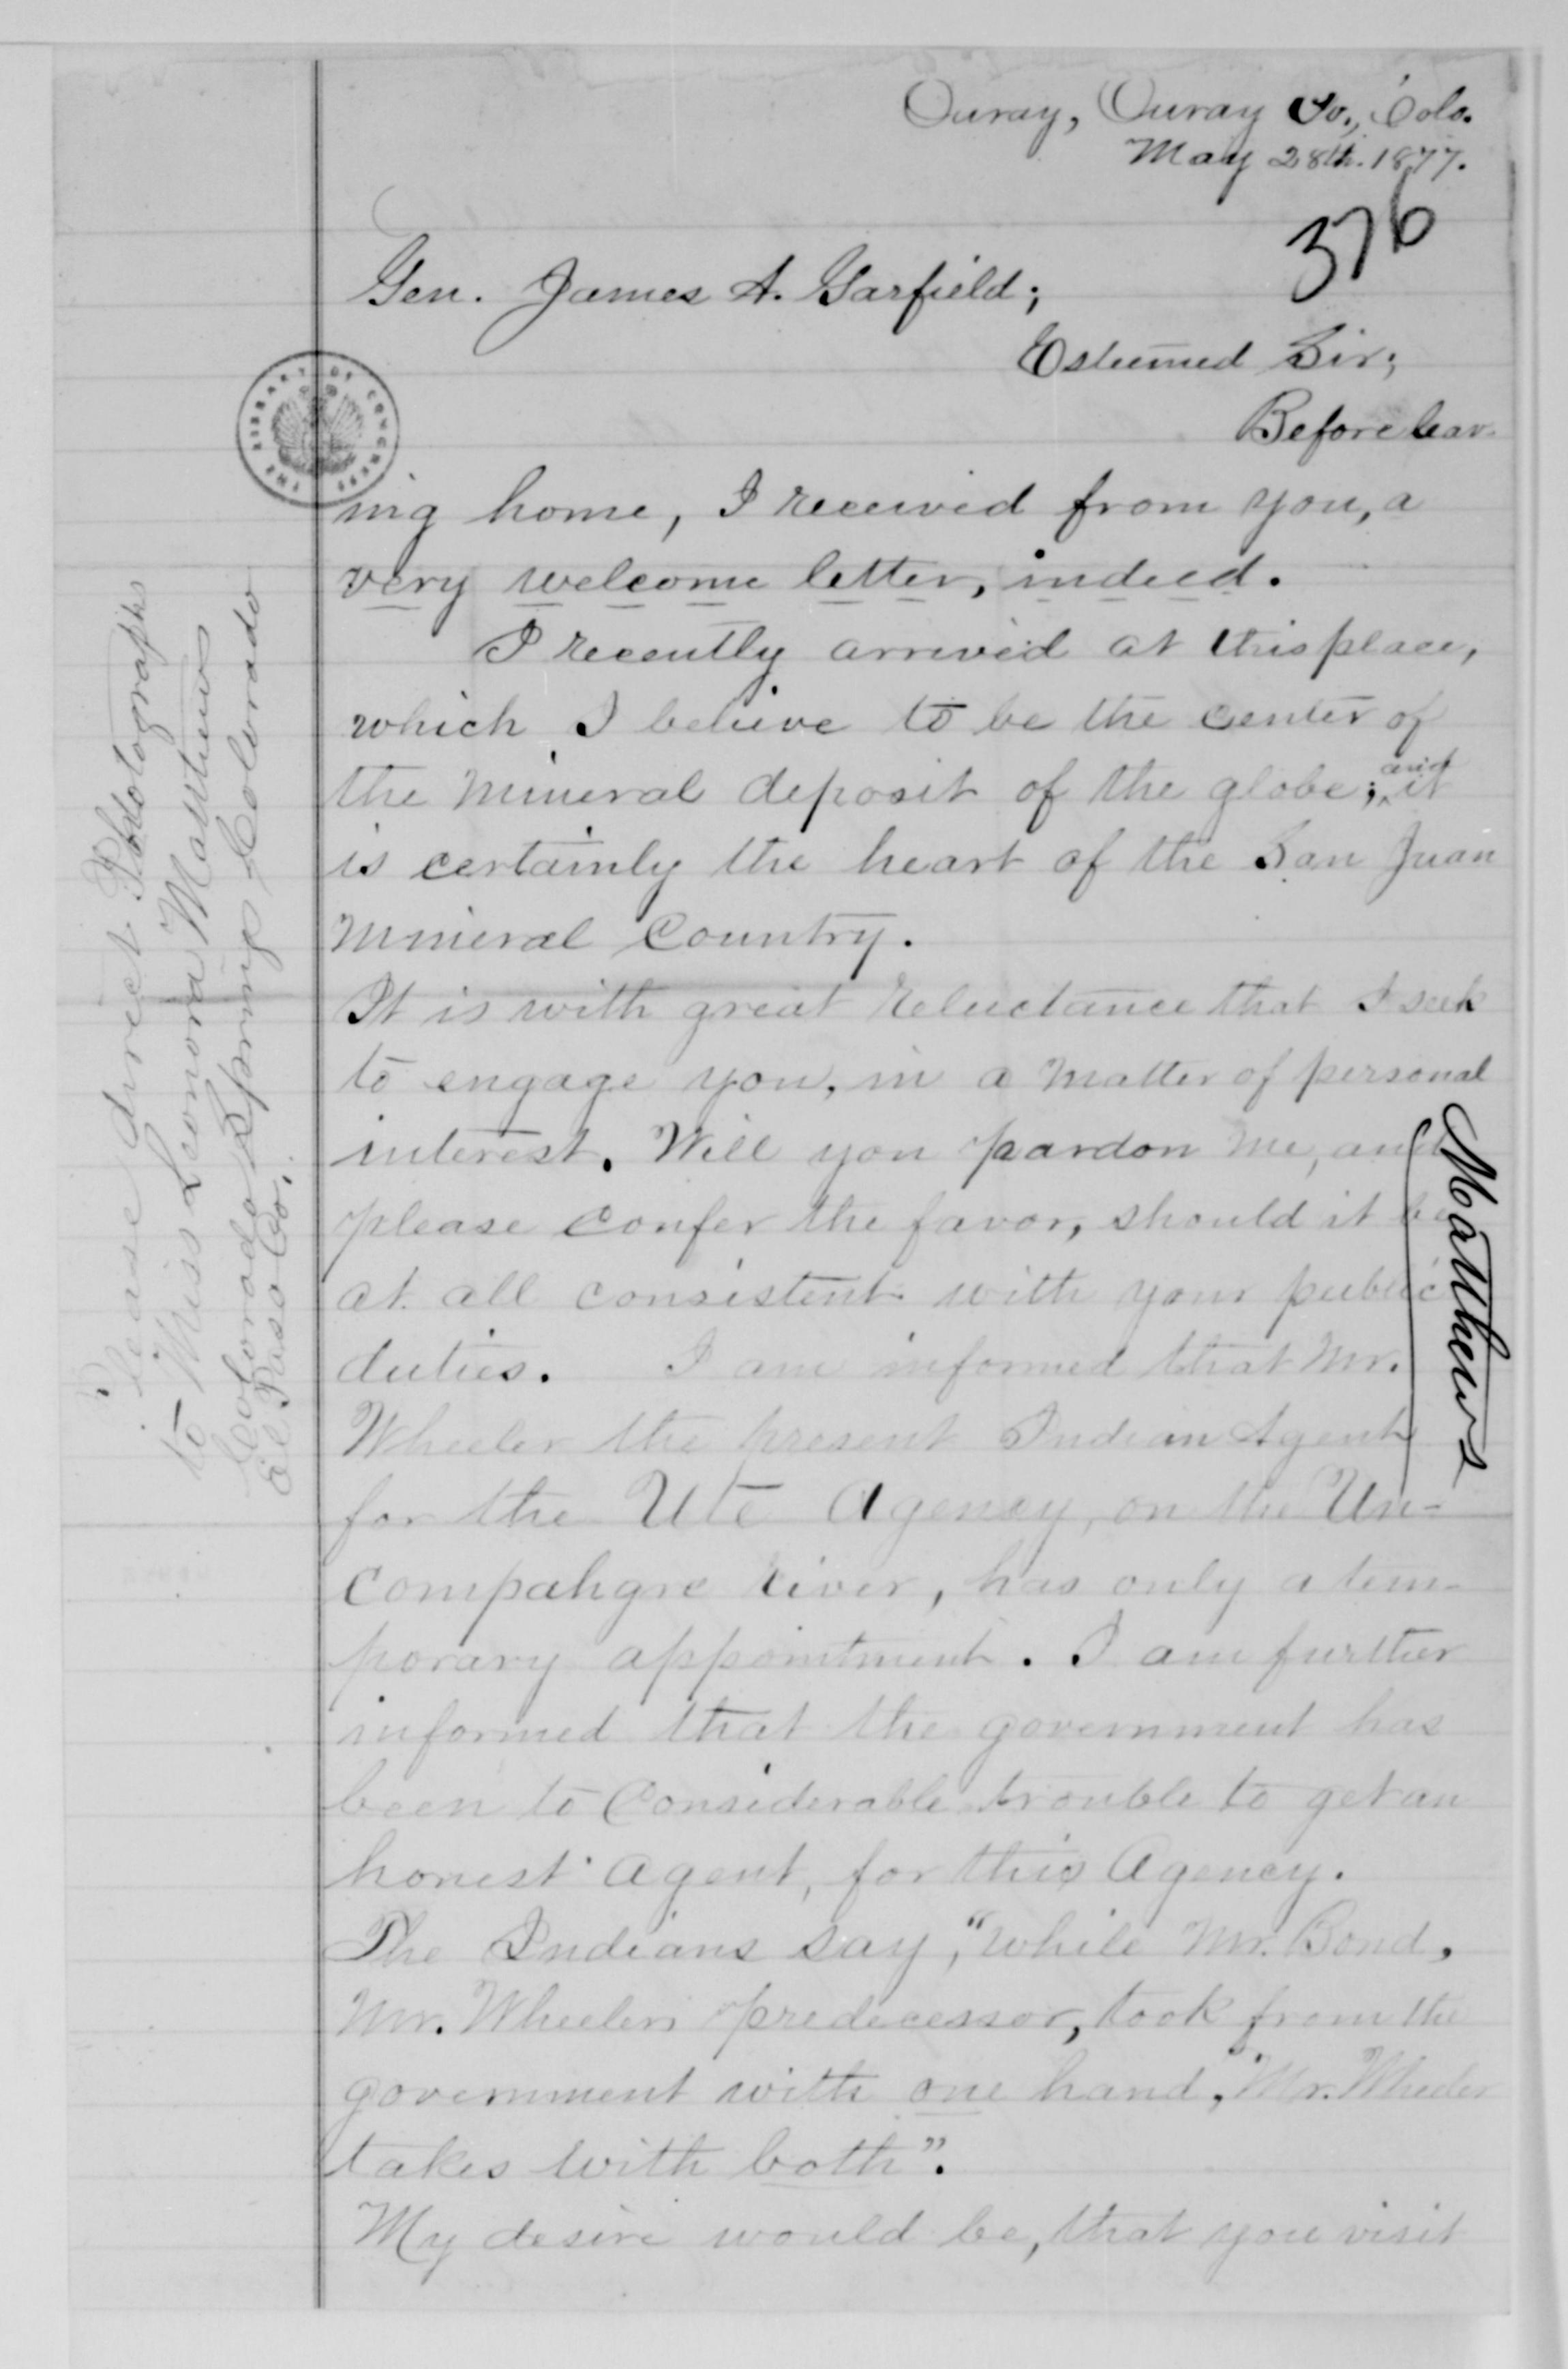 Ouray, Ouray Co., Colo.
May 28th. 1877.
376
Gen. James A. Garfield;
Esteemed Sir;
Before leav-
ing home, I received from you, a
very welcome letter, indeed.
I recently arrived at this place,
which I believe to be the center of
the mineral deposit of the globe; and it
is certainly the heart of the San Juan
mineral Country.
It is with great reluctance that I seek
to engage you, in a matter of personal
interest. Will you pardon me, and
please confer the favor, should it be
at all consistent with your public
duties. I am informed that Mr.
Wheeler the present Indian Agent
for the Ute Agency, on the Un-
compahgre river, has only a tem-
porary appointment. I am further
informed that the government has
been to Considerable trouble to get an
honest Agent, for this Agency.
The Indians say, "while Mr. Bond,
Mr. Wheelers predecessor, took from the
government with one hand, Mr. Wheeler
takes with both".
My desire would be, that you visit
Mathews
Please direct Photographs
to Miss Leonora Mathews
Colorado Springs Colorado
El Paso Co.
THE LIBRARY OF CONGRESS